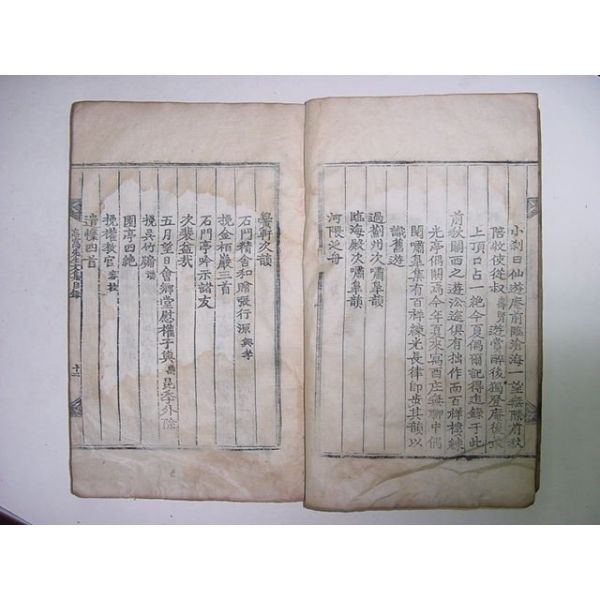 小刹曰仙遊庵前臨滄海一望無際前秋
陪敬使從叔遊賞醉後獨登庵後
上頂口占一絶今夏偶爾記得追錄于此
前秋關西之遊沿途俱有拙作而百祥樓練
光亭偶闕焉今年夏來寓酉庄無聊中偶
閱嘯皐集有百祥練光長律即步其韻以
識舊遊
過薊州次嘯皐韻
臨海殿次嘯皐韻
河隈泛舟
鬱軒次韻
石門精舍和贈張行源 興孝
挽金栢巖三首
石門亭吟示諸友
次裴益哉
五月望日會鄉堂慰權子輿昆季外除
挽吳竹牖 澐
園亭四絶
挽權敎官
遣懷四首
先生文集目錄
十二